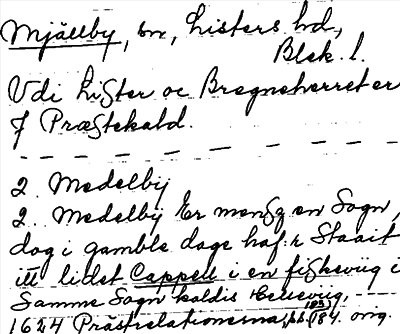 Mjällby, sn, Listers hd,
Blek. l.
Udi Lister oc Bregneherret er
7 Præstekald.
2. Medelby
2. Medelby Er mensg en Sogn,
dog i gamble dage haf.r Staait
itt lidet Cappell i en fiskevig i
Samme Sogn kaldis
1624 Prästrelationerna, orig.